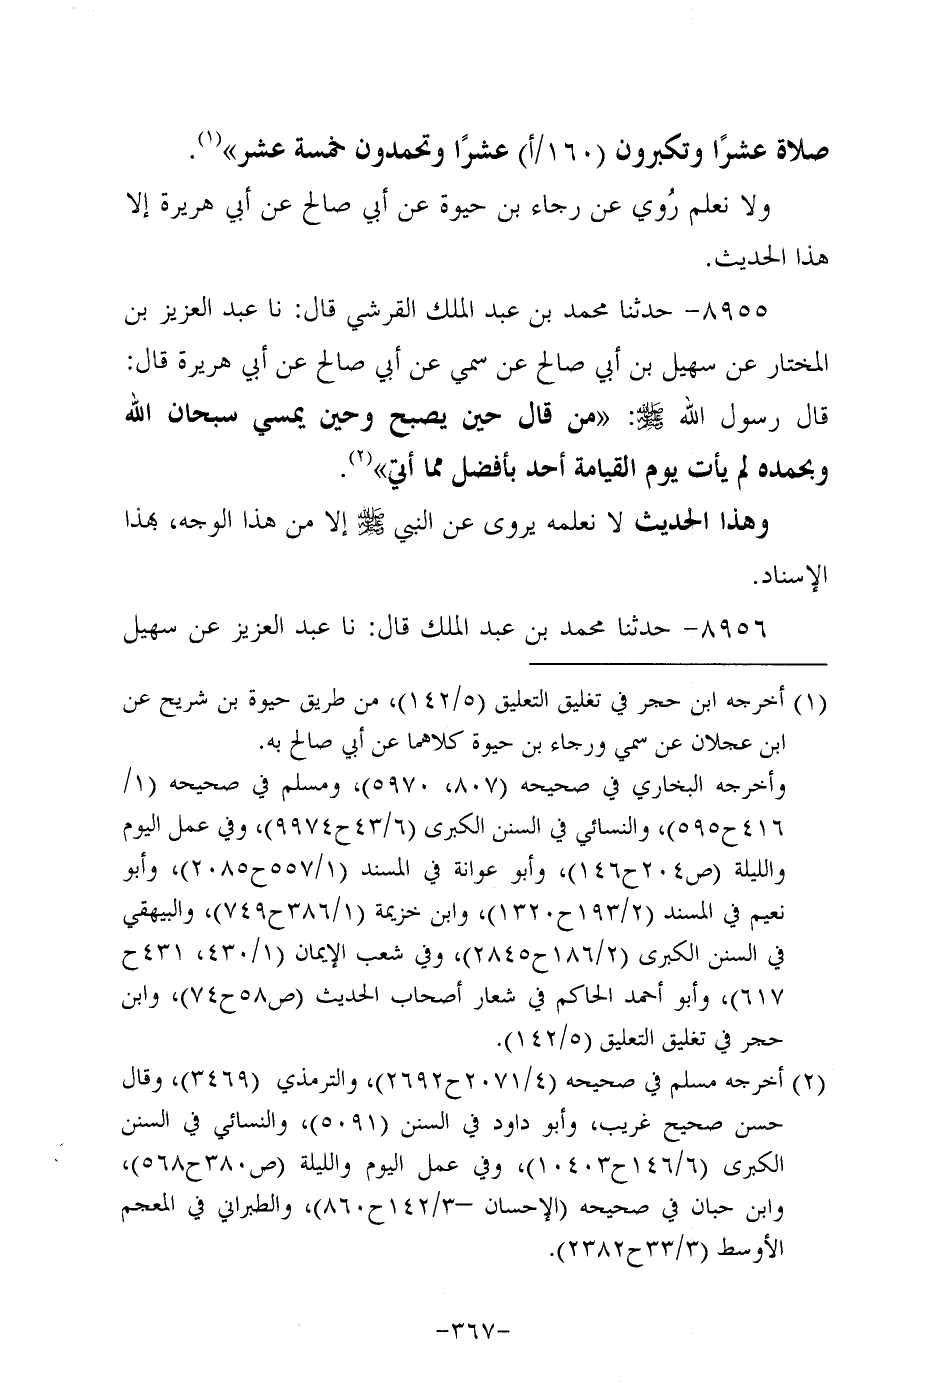 صلاة عشرًا وتكبرون (١٦٠/أ) عشرًا وتحمدون خمسة عشر»(١).
ولا نعلم رُوي عن رجاء بن حيوة عن أبي صالح عن أبي هريرة إلا
هذا الحديث.
٨٩٥٥- حدثنا محمد بن عبد الملك القرشي قال: نا عبد العزيز بن
المختار عن سهيل بن أبي صالح عن سمي عن أبي صالح عن أبي هريرة قال:
قال رسول الله ﷺ: «من قال حين يصبح وحين يمسي سبحان الله
وبحمده لم يأت يوم القيامة أحد بأفضل مما أتى»(٢).
وهذا الحديث لا نعلمه يروى عن النبي ﷺ إلا من هذا الوجه، بهذا
الإسناد.
٨٩٥٦- حدثنا محمد بن عبد الملك قال: نا عبد العزيز عن سهيل
(١) أخرجه ابن حجر في تغليق التعليق (١٤٢/٥)، من طريق حيوة بن شريح عن
ابن عجلان عن سمي ورجاء بن حيوة كلاهما عن أبي صالح به.
وأخرجه البخاري في صحيحه (٨٠٧، ٥٩٧٠)، ومسلم في صحيحه (١/
٤١٦ح٥٩٥)، والنسائي في السنن الكبرى (٤٣/٦ح٩٩٧٤)، وفي عمل اليوم
والليلة (ص٢٠٤ح١٤٦)، وأبو عوانة في المسند (٥٥٧/١ح٢٠٨٥)، وأبو
نعيم في المسند (١٩٣/٢ح١٣٢٠)، وابن خزيمة (٣٨٦/١ح٧٤٩)، والبيهقي
في السنن الكبرى (١٨٦/٢ح٢٨٤٥)، وفي شعب الإيمان (٤٣٠/١، ٤٣١ح
٦١٧)، وأبو أحمد الحاكم في شعار أصحاب الحديث (ص٥٨ح٧٤)، وابن
حجر في تغليق التعليق (١٤٢/٥).
(٢) أخرجه مسلم في صحيحه (٢٠٧١/٤ح٢٦٩٢)، والترمذي (٣٤٦٩)، وقال
حسن صحيح غريب، وأبو داود في السنن (٥٠٩١)، والنسائي في السنن
الكبرى (١٤٦/٦ح١٠٤٠٣)، وفي عمل اليوم والليلة (ص٣٨٠ح٥٦٨)،
وابن حبان في صحيحه (الإحسان –١٤٢/٣ح٨٦٠)، والطبراني في المعجم
الأوسط (٣٣/٣ح٢٣٨٢).
-٣٦٧-